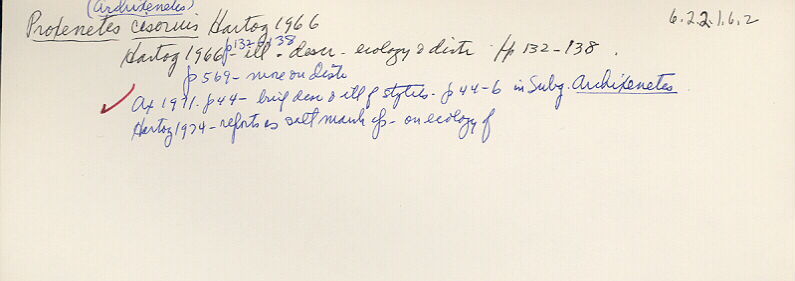 (Archixenetes)
Proxenetes cisorius Hartog 1966
6.2.2.1.6.2
Hartog 1966 p132 & 138 - ill - descr - ecology & distr pp 132-138.
p 569 - more on distr
✓ Ax 1971. p44 - brief descr & ill of stylets. p 44-6 in Subg. Archixenetes.
Hartog 1974 - reports as salt marsh sp - on ecology of